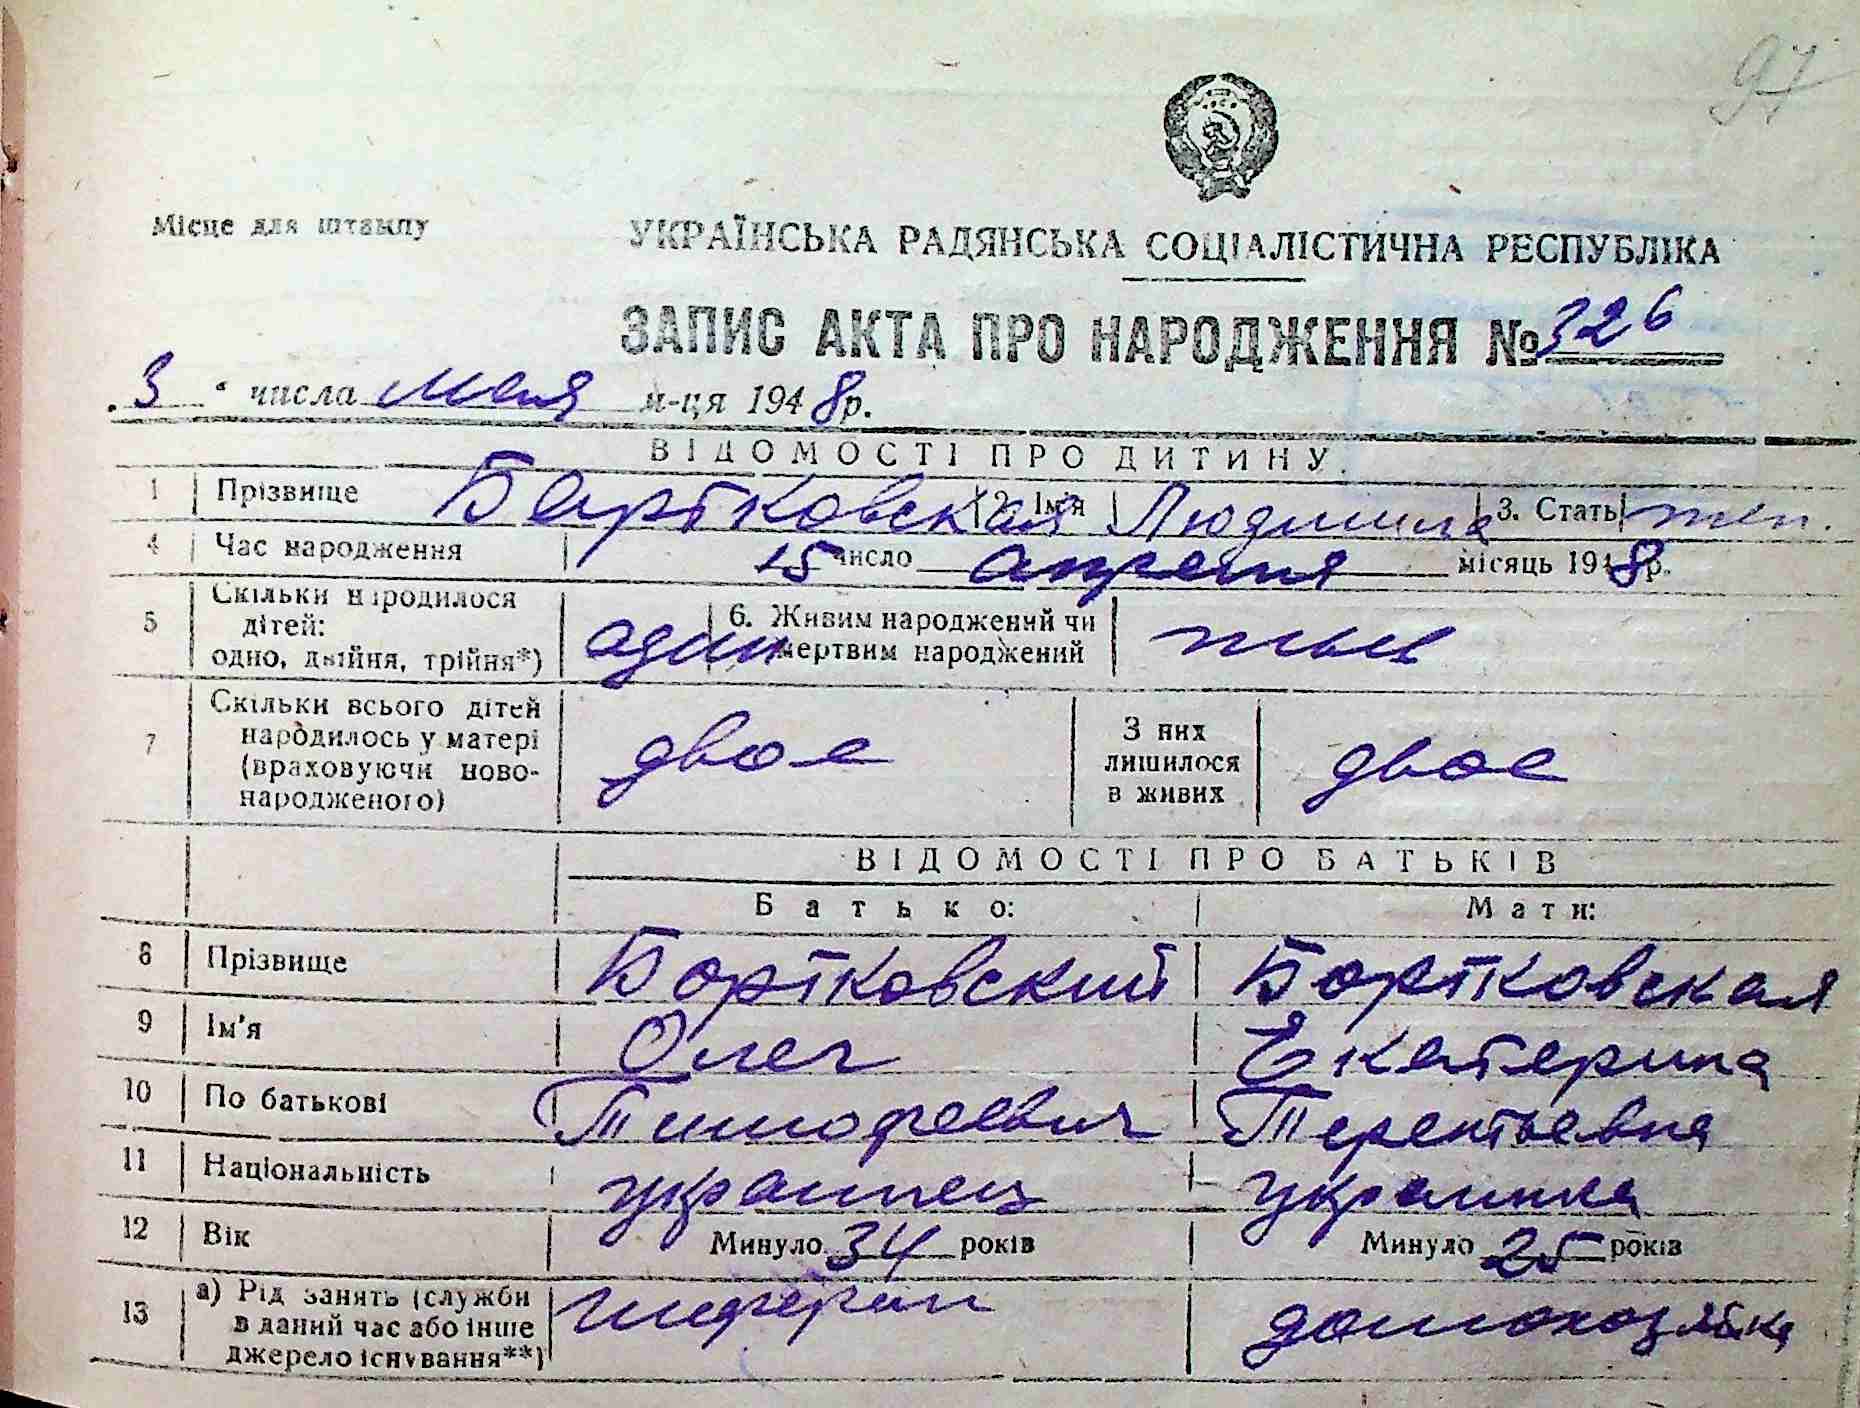 97
Місце для штампу
УКРАЇНСЬКА РАДЯНСЬКА СОЦІАЛІСТИЧНА РЕСПУБЛІКА
ЗАПИС АКТА ПРО НАРОДЖЕННЯ № 326
„3“ числа мая м-ця 1948р.
ВІДОМОСТІ ПРО ДИТИНУ
1 Прізвище Бартковская 2. Ім'я Людмила 3. Стать жен.
4 Час народження 15 число апреля місяць 1948р.
5 Скільки народилося дітей: одно, двійня, трійня*) один 6. Живим народжений чи мертвим народжений жив
7 Скільки всього дітей народилось у матері (враховуючи новонародженого) двое З них лишилося в живих двое
ВІДОМОСТІ ПРО БАТЬКІВ
Батько: Мати:
8 Прізвище Бортковский Бортковская
9 Ім'я Олег Екатерина
10 По батькові Тимофеевич Терентьевна
11 Національність украинец украинка
12 Вік Минуло 34 років Минуло 25 років
13 а) Рід занять (служби в даний час або інше джерело існування**) домохозяйка